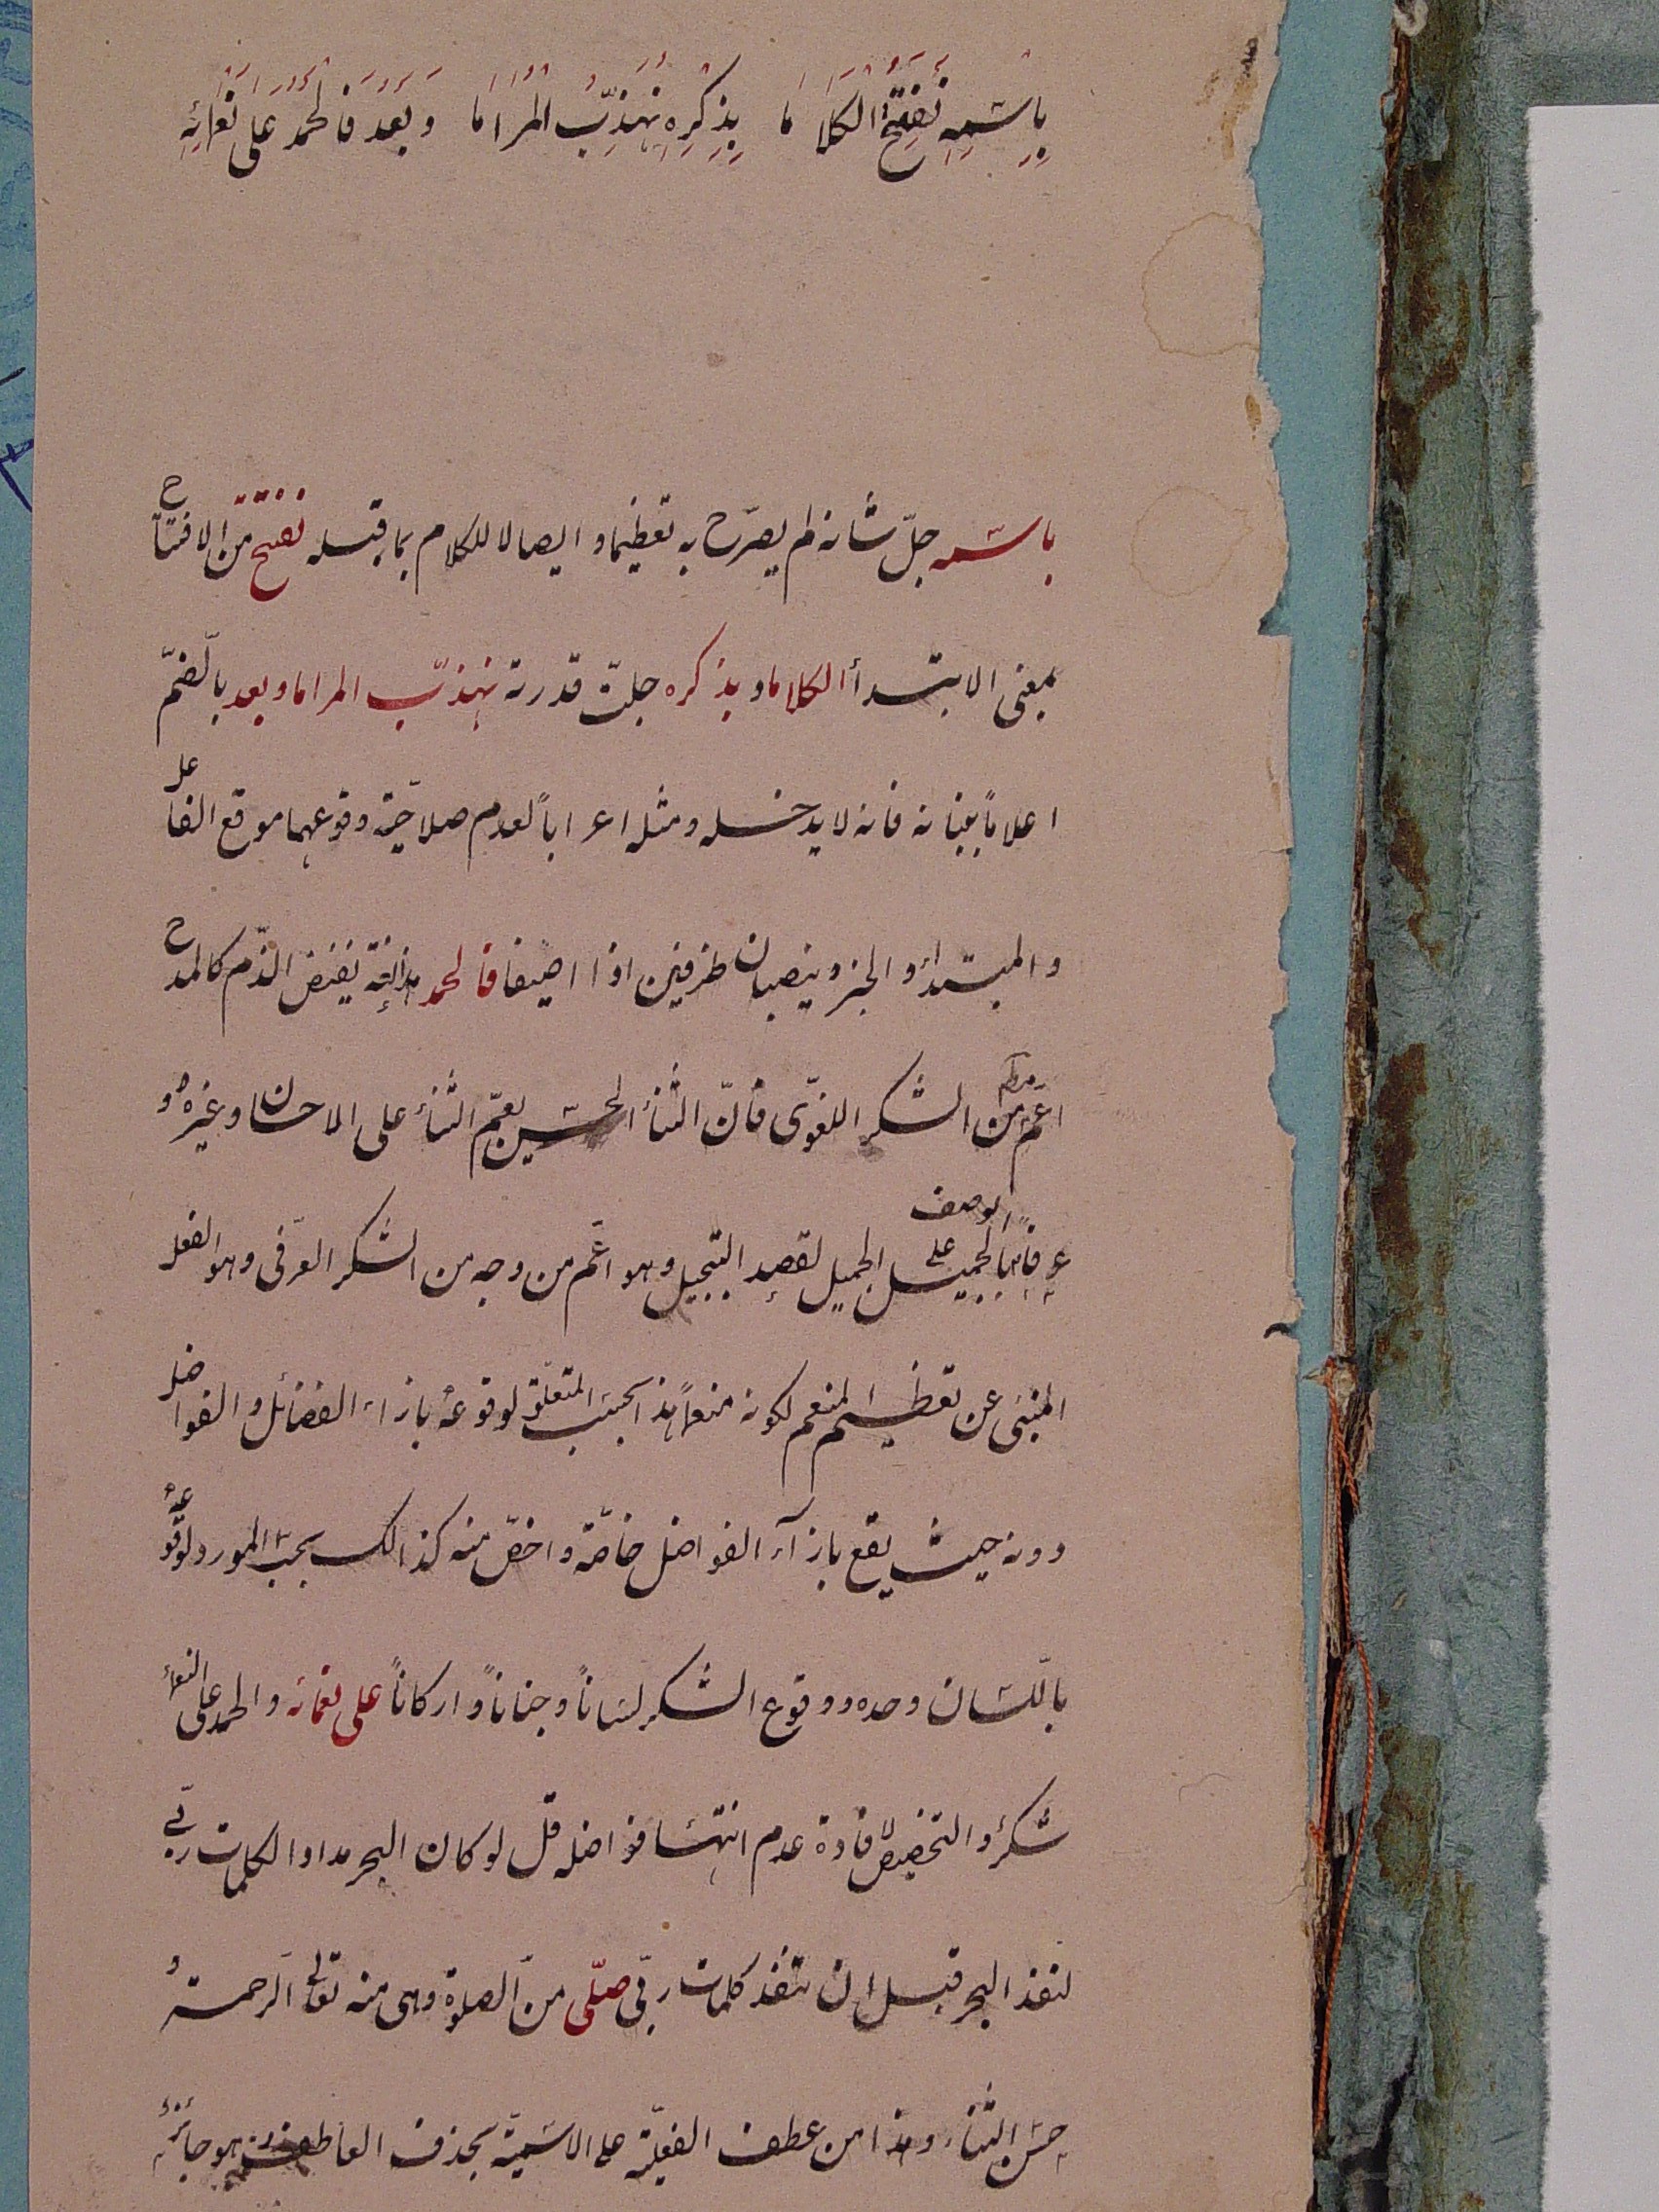 بِاسْمِهِ نَفْتَتِحُ الكَلَامَا بِذِكْرِهِ نُهَذِّبُ المَرَامَا وَبَعْدُ فَالحَمْدُ عَلَى نَعْمَائِهِ
باسمه جلّ شانه لم يصرّح به تعظيما و ايصالا للكلام بما قبله نفتتح من الافتتاح
بمعنى الابتدأ الكلاما و بذكره جلت قدرته نهذّب المراما و بعد بالضّمّ
اعلاماً ببنائه فانه لا يدخله و مثله اعراباً لعدم صلاحيّة وقوعهما موقع الفاعل
و المبتداء و الخبر و ينصبان ظرفين اذا اضيفا فالحمد هذا لغة نقيض الذّم كالمدح
اعمّ مطم من الشكر اللغوّى فانّ الثناء الحسن يعمّ الثناء على الاحسان و غيره و
عرفاً الوصف بالجميل على الجميل لقصد التبجيل و هو اعّم من وجه من الشكر العرّفى و هو الفعل
المنبئ عن تعظيم المنعم لكونه منعماً هذا بحسب المتعلّق لوقوعه بازاء الفضائل و الفواضل
دونه حيث يقع بازآء الفواضل خاصّة و اخصّ منه كذالك بحسب المورد لوقوعه
باللّسان وحده و وقوع الشكر لسَاناً و جناناً و اركاناً على نعمائه و الحمد على النعمأ
شكرٌ و التخصيص لافادة عدم انتهَا فواضله قل لو كان البحر مدادا لكلمات ربّى
لنفذ البحر قبل ان تنفذ كلمات ربّى صلّى من الصلوة و هى منه تعالى الرّحمة و
حسن الثناء و هذا من عطف الفعليّة على الاسميّة بحذف العاطف و هو جائز